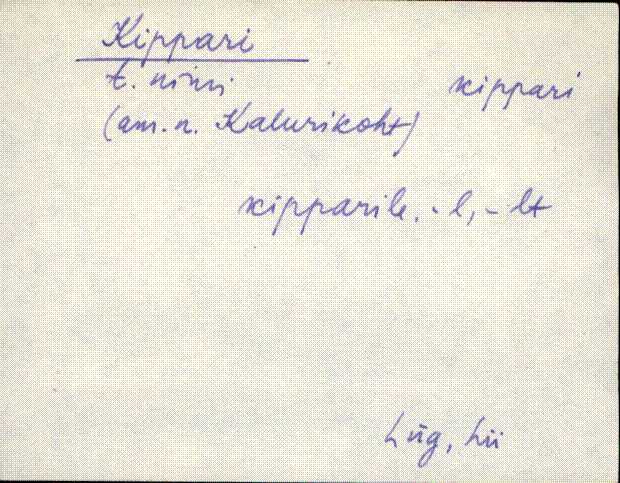 Kippari
t. nimi
kippari
(am. n. Kalurikoht)
kipparile, -l, -lt
Lüg, Lii